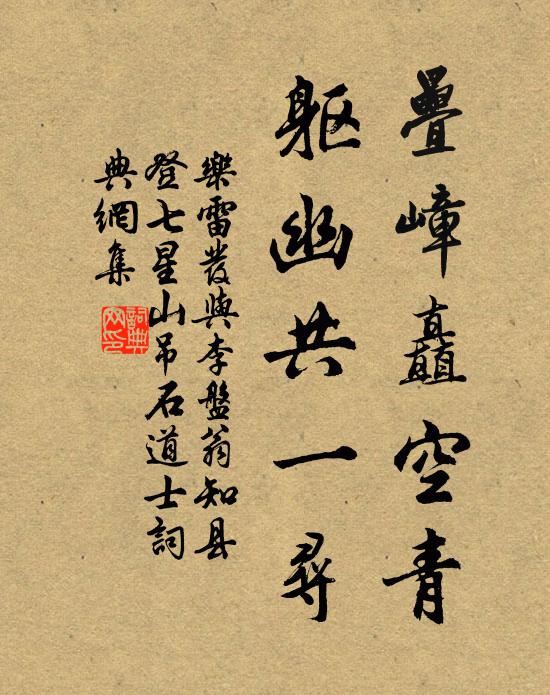 疊嶂矗空青
軀幽共一尋
樂雷發與李盤翁知县
登七星山吊石道士詞
典網集
詞典网印